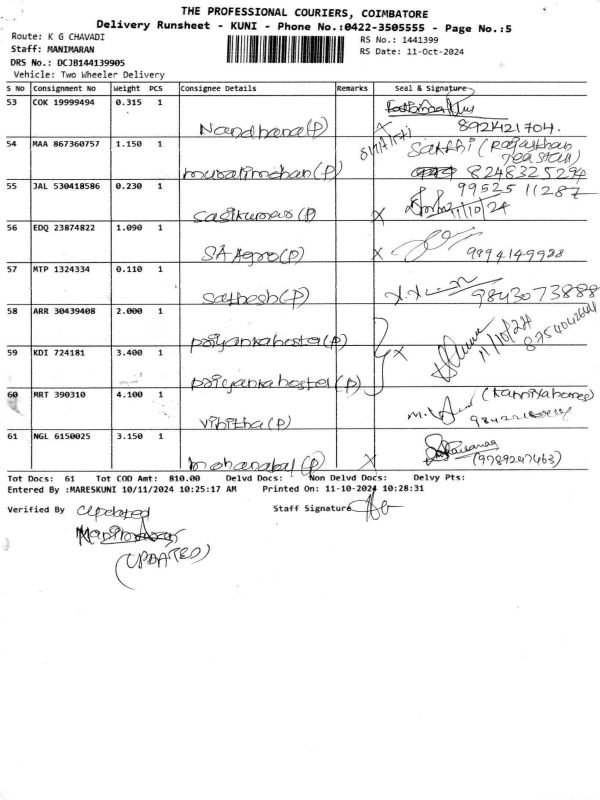 THE PROFESSIONAL COURIERS, COIMBATORE
Delivery Runsheet - KUNI - Phone No.:0422-3505555 - Page No.:5
Route: K G CHAVADI
RS No.: 1441399
Staff: MANIMARAN
RS Date: 11-Oct-2024
DRS No.: DCJB144139905
Vehicle: Two Wheeler Delivery
S No Consignment No Weight PCS Consignee Details Remarks Seal & Signature
53 COK 19999494 0.315 1
Nandhana(P) 8921421704.
54 MAA 867360757 1.150 1 SAKTHI (Rajasthan
Tea stall)
muralimohan(P) 8248325294
55 JAL 530418586 0.230 1 99525 11287
Sasikumar(P) X 11/10/24
56 EDQ 23874822 1.090 1
SA Agro(P) X 9994149988
57 MTP 1324334 0.110 1
Sathesh(P) 9843073888
58 ARR 30439408 2.000 1
priyankahostel(P) 11/10/24
59 KDI 724181 3.400 1 X
priyankahostel(P)
60 MRT 390310 4.100 1
Vibitha(P)
61 NGL 6150025 3.150 1
mohanabal(P) X (9789247463)
Tot Docs: 61 Tot COD Amt: 810.00 Delvd Docs: Non Delvd Docs: Delvy Pts:
Entered By :MARESKUNI 10/11/2024 10:25:17 AM Printed On: 11-10-2024 10:28:31
Verified By Updated Staff Signature
Manimaran
(UPDATED)